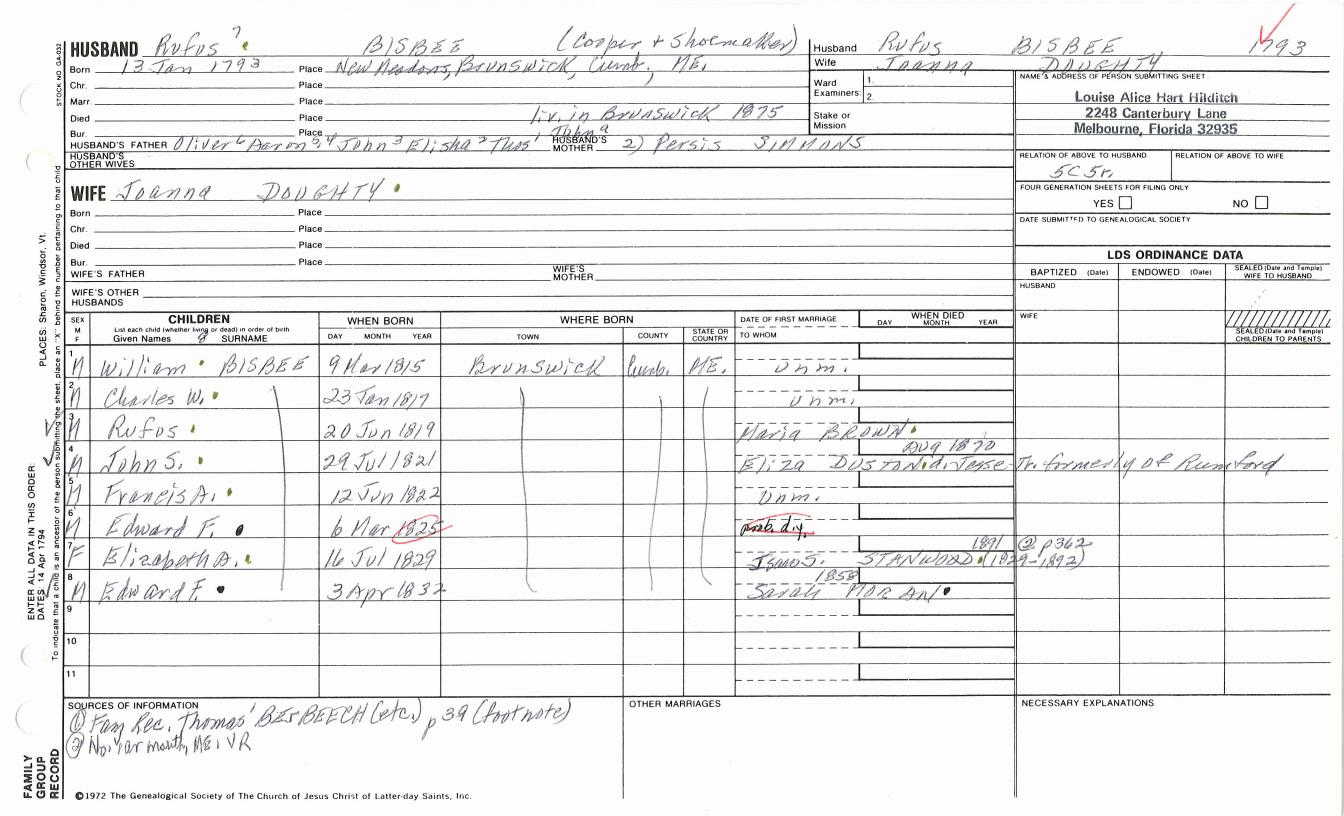 STOCK NO. GA-032
HUSBAND Rufus 7 BISBEE (Cooper + Shoemaker)
Born 13 Jan 1793 Place New Meadows, Brunswick, Cumb., ME.
Chr. Place
Marr Place
Died Place liv. in Brunswick 1875
Bur. Place
HUSBAND'S FATHER Oliver 6 Aaron 5, 4 John 3 Elisha 2 Thos' HUSBAND'S MOTHER 2) Persis SIMMONS
HUSBAND'S OTHER WIVES
WIFE Joanna DOUGHTY
Born Place
Chr. Place
Died Place
Bur. Place
WIFE'S FATHER WIFE'S MOTHER
WIFE'S OTHER HUSBANDS
Husband Rufus BISBEE 1793
Wife Joanna DOUGHTY
Ward Examiners: 1. 2.
Stake or Mission
NAME & ADDRESS OF PERSON SUBMITTING SHEET
Louise Alice Hart Hilditch
2248 Canterbury Lane
Melbourne, Florida 32935
RELATION OF ABOVE TO HUSBAND RELATION OF ABOVE TO WIFE
5C 5r.
FOUR GENERATION SHEETS FOR FILING ONLY
YES NO
DATE SUBMITTED TO GENEALOGICAL SOCIETY
LDS ORDINANCE DATA
BAPTIZED (Date) ENDOWED (Date) SEALED (Date and Temple) WIFE TO HUSBAND
HUSBAND
WIFE
SEALED (Date and Temple) CHILDREN TO PARENTS
SEX M F
CHILDREN
List each child (whether living or dead) in order of birth
Given Names 8 SURNAME
WHEN BORN
DAY MONTH YEAR
WHERE BORN
TOWN COUNTY STATE OR COUNTRY
DATE OF FIRST MARRIAGE
TO WHOM
WHEN DIED
DAY MONTH YEAR
1 M William BISBEE 9 Mar 1815 Brunswick Cumb. ME. Unm.
2 M Charles W. 23 Jan 1817 Unm.
3 M Rufus 20 Jun 1819 Maria BROWN
Aug 1870
4 M John S. 29 Jul 1821 Eliza DUSTON d. Jesse Tr. formerly of Rumford
5 M Francis A. 12 Jun 1822 Unm.
6 M Edward F. 6 Mar 1825 prob. d.y.
1891 ② p362
7 F Elizabeth A. 16 Jul 1829 STANWOOD (1829-1892)
1858
8 M Edward F. 3 Apr 1832 Sarah MORAN
9
10
11
SOURCES OF INFORMATION
① Fam Rec. Thomas' BESBEECH (etc.) p 39 (footnote)
② No. Yarmouth, ME. VR
OTHER MARRIAGES
NECESSARY EXPLANATIONS
ENTER ALL DATA IN THIS ORDER:
DATES: 14 Apr 1794
PLACES: Sharon, Windsor, Vt.
To indicate that a child is an ancestor of the person submitting the sheet, place an "X" behind the number pertaining to that child
FAMILY GROUP RECORD
©1972 The Genealogical Society of The Church of Jesus Christ of Latter-day Saints, Inc.